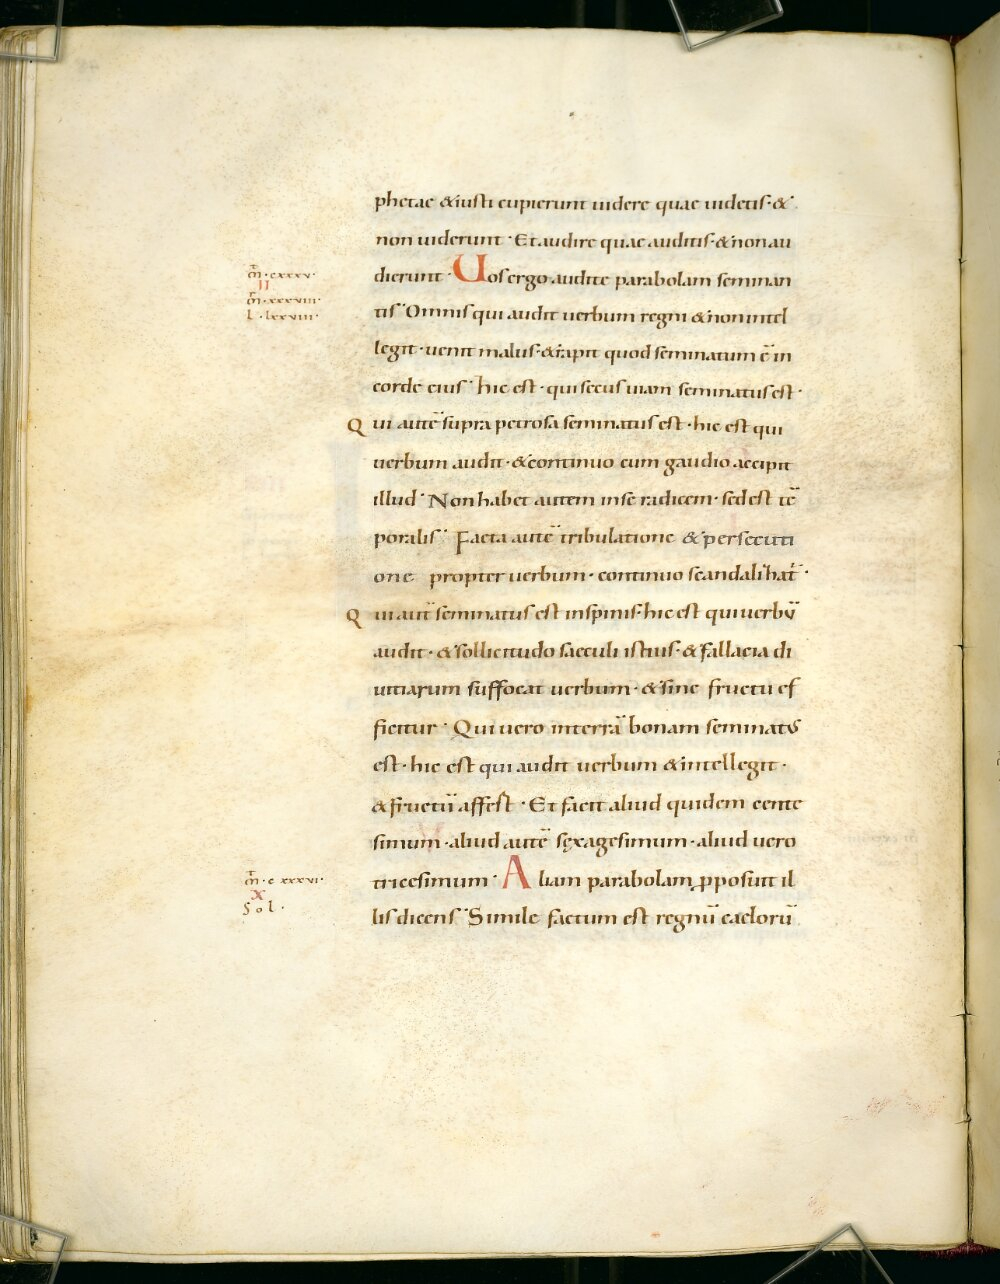 phetae & iusti cupierunt uidere quae uidetis · &
non uiderunt · Et audire quae auditis · & non au
m̄ · cxxxv ·
dierunt · Uos ergo audite parabolam seminan
II
m̄ · xxxviii ·
L · lxxviii ·
tis · Omnis qui audit uerbum regni & non intel
legit · uenit malus · & rapit quod seminatum ē in
corde eius · hic est · qui secus uiam seminatus est ·
Qui autē supra petrosa seminatus est · hic est qui
uerbum audit · & continuo cum gaudio accipit
illud · Non habet autem in se radicem · sed est tē
poralis · Facta autē tribulatione & persecuti
one propter uerbum · continuo scandalizat̄ ·
Qui aut̄ seminatus est in spinis · hic est qui uerbū
audit · & sollicitudo saeculi istius · & fallacia di
uitiarum suffocat uerbum · & sine fructu ef
ficitur · Qui uero in terrā bonam seminatus
est · hic est qui audit uerbum & intellegit ·
& fructū affert · Et facit aliud quidem cente
simum · aliud autē sexagesimum · aliud uero
m̄ · c xxxvi ·
tricesimum · Aliam parabolam ꝓposuit il
X
Sol ·
lis dicens · Simile factum est regnū caelorū